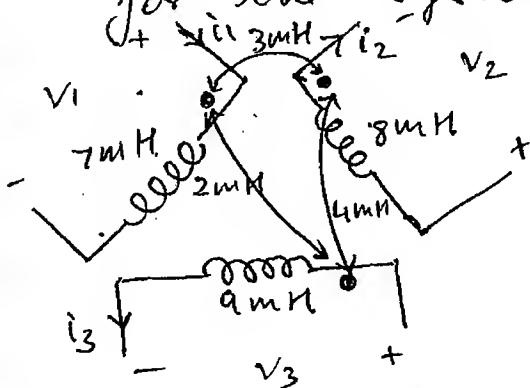 + i1 3mH i2
V1 V2
7mH 8mH +
- 2mH 4mH
9mH
i3 - V3 +